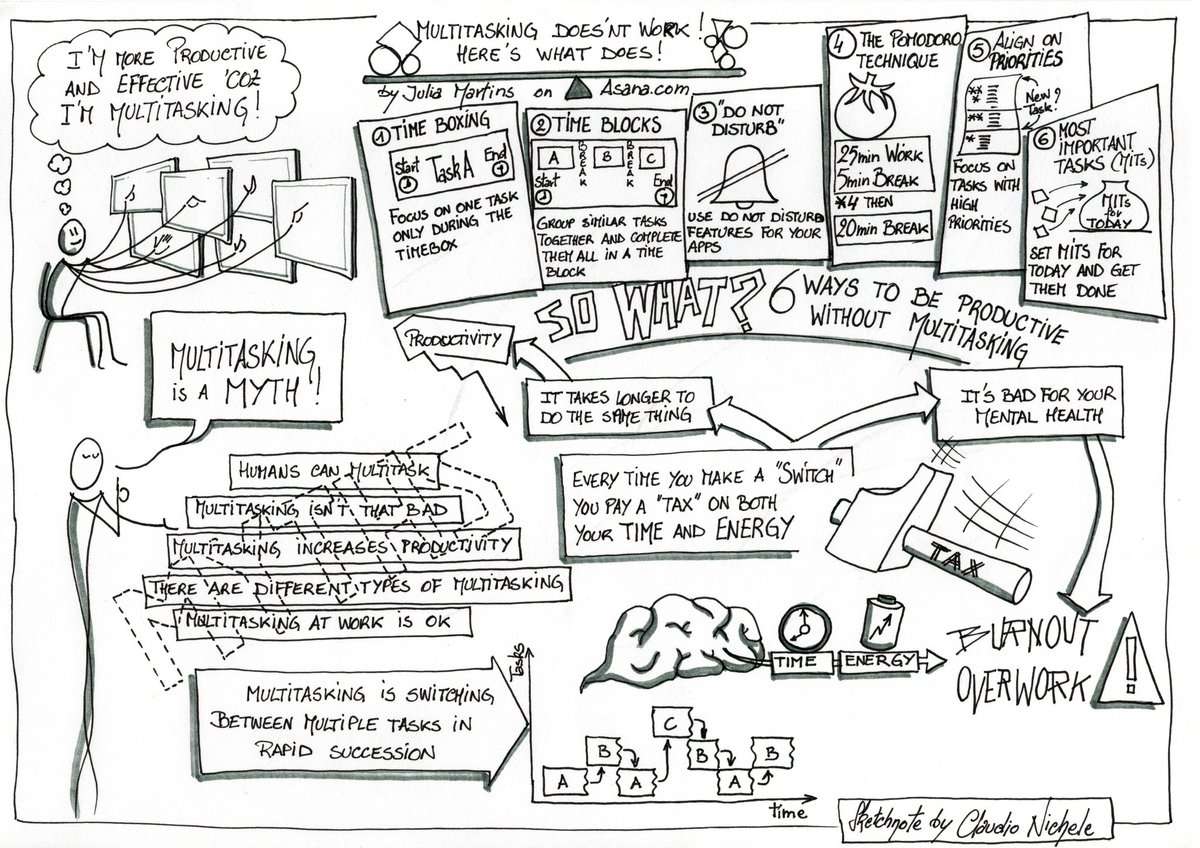 I'M MORE PRODUCTIVE
AND EFFECTIVE 'COZ
I'M MULTITASKING!
MULTITASKING DOES'NT WORK!
HERE'S WHAT DOES!
by Julia Martins on Asana.com
1 TIME BOXING
Start Task A End
FOCUS ON ONE TASK
ONLY DURING THE
TIMEBOX
2 TIME BLOCKS
A BREAK B BREAK C
Start End
GROUP SIMILAR TASKS
TOGETHER AND COMPLETE
THEM ALL IN A TIME
BLOCK
3 "DO NOT
DISTURB"
USE DO NOT DISTURB
FEATURES FOR YOUR
APPS
4 THE POMODORO
TECHNIQUE
25min WORK
5min BREAK
*4 THEN
20min BREAK
5 ALIGN ON
PRIORITIES
**
**
*
New?
Task!
FOCUS ON
TASKS WITH
HIGH
PRIORITIES
6 MOST
IMPORTANT
TASKS (MITs)
MITs
for
TODAY
SET MITS FOR
TODAY AND GET
THEM DONE
SO WHAT? 6 WAYS TO BE PRODUCTIVE
WITHOUT MULTITASKING
MULTITASKING
is A MYTH!
PRODUCTIVITY
IT TAKES LONGER TO
DO THE SAME THING
IT'S BAD FOR YOUR
MENTAL HEALTH
EVERY TIME YOU MAKE A "SWITCH"
YOU PAY A "TAX" ON BOTH
YOUR TIME AND ENERGY
TAX
HUMANS CAN MULTITASK
MULTITASKING ISN'T THAT BAD
MULTITASKING INCREASES PRODUCTIVITY
THERE ARE DIFFERENT TYPES OF MULTITASKING
MULTITASKING AT WORK IS OK
TIME ENERGY
BURNOUT
OVERWORK
!
MULTITASKING IS SWITCHING
BETWEEN MULTIPLE TASKS IN
RAPID SUCCESSION
Tasks
C
B B B
A A A
time
Sketchnote by Claudio Nichele